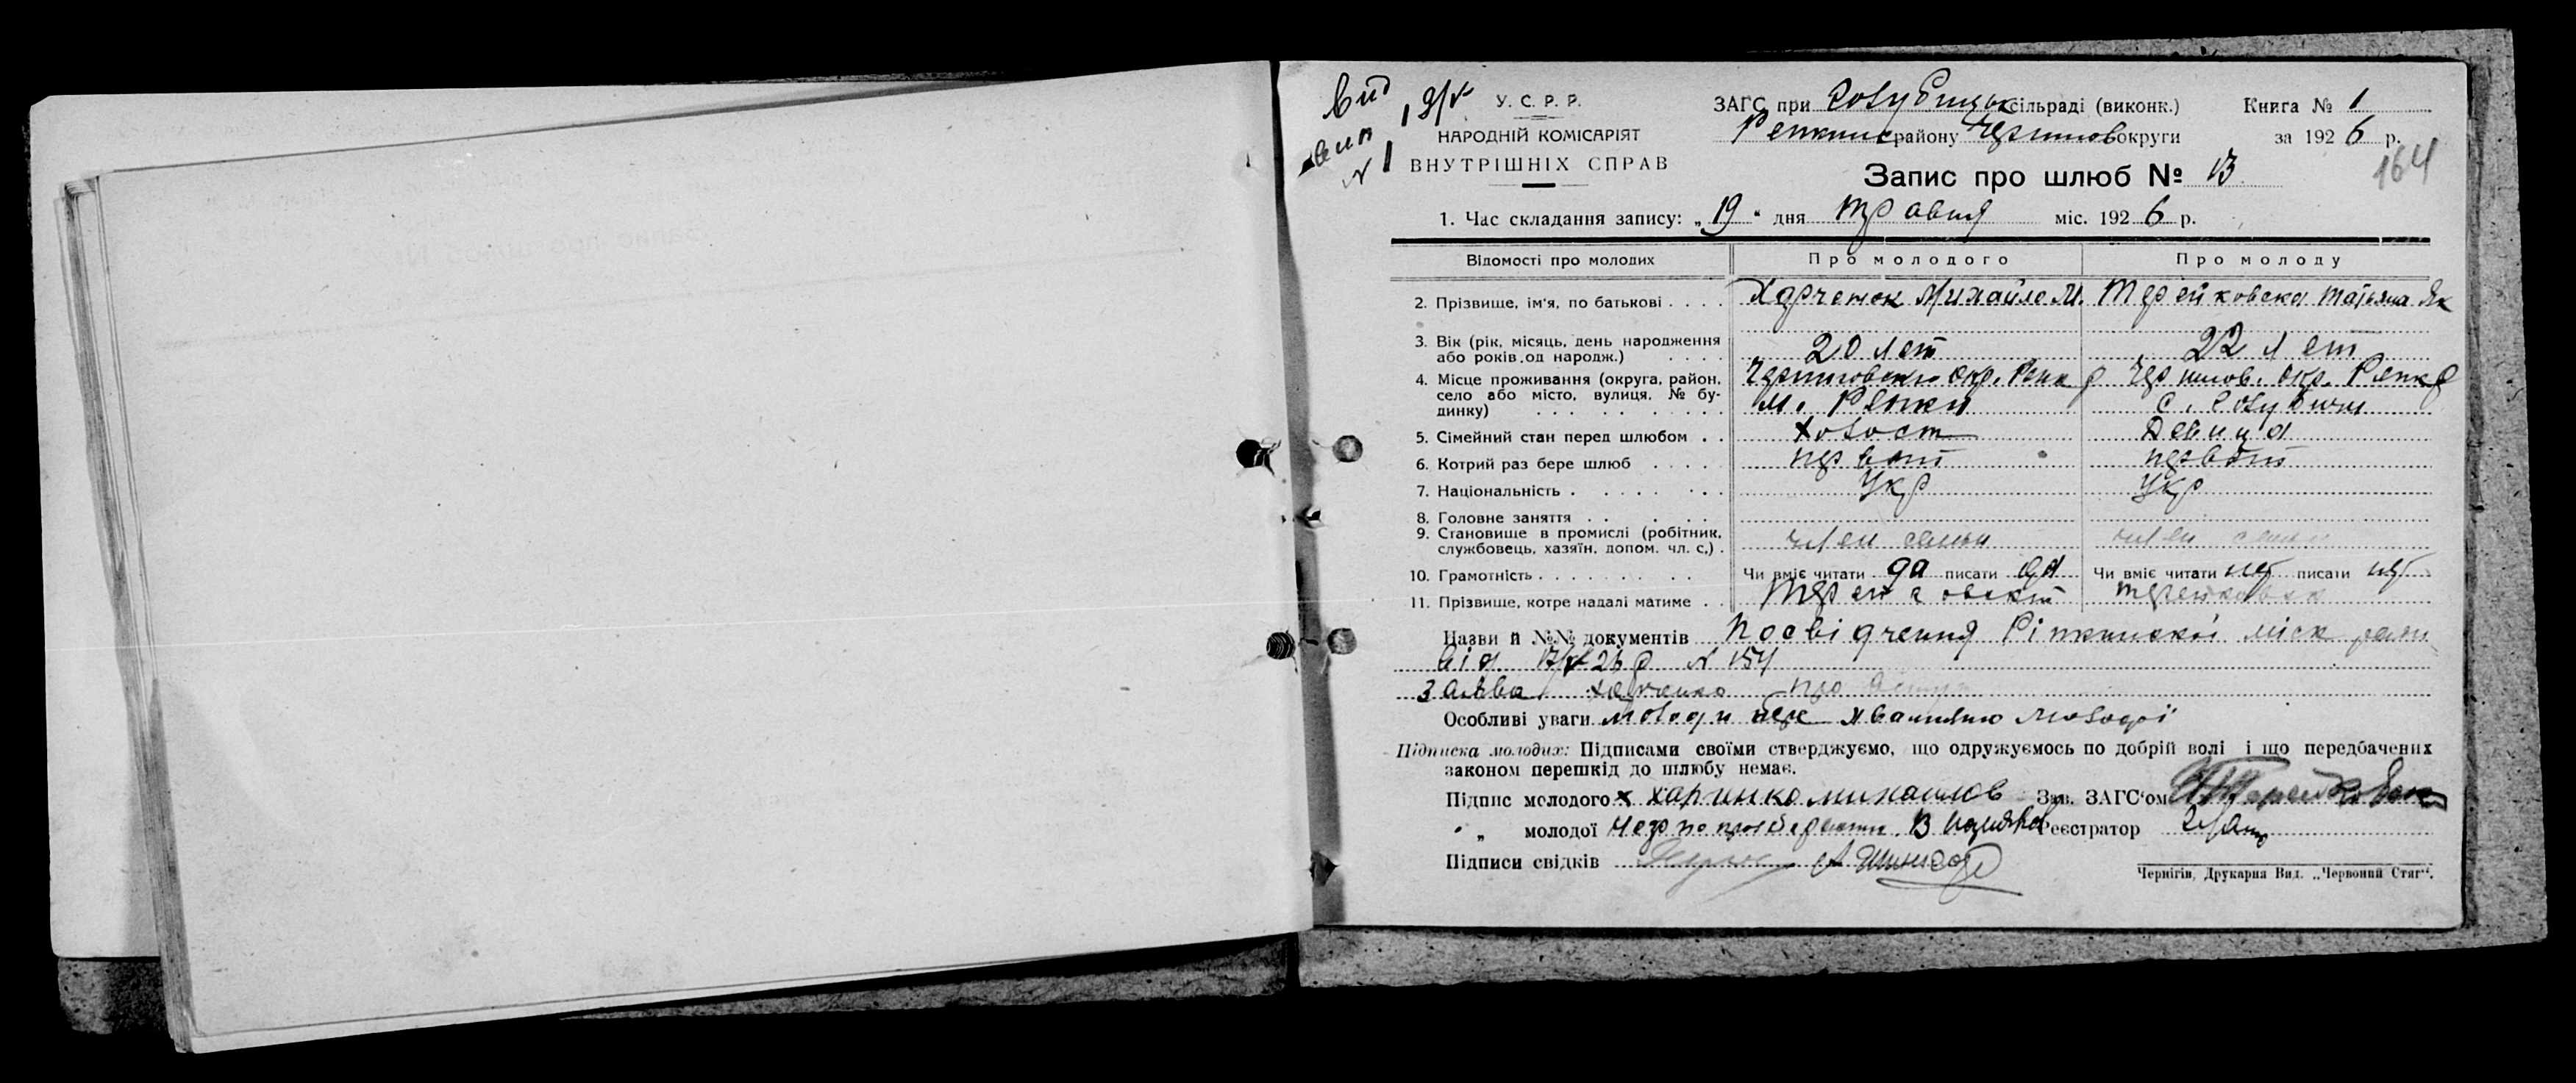 Вид
вип
№ 1
19/V
У. С. Р. Р.
НАРОДНІЙ КОМІСАРІЯТ
ВНУТРІШНІХ СПРАВ
ЗАГС при Голубицьк сільраді (виконк.) Книга № 1
Репкинс району Чернигов округи за 1926 р.
164
Запис про шлюб № 13
1. Час складання запису: „19“ дня травня міс. 1926 р.
Відомості про молодих Про молодого Про молоду
2. Прізвище, ім'я, по батькові Харченок Михайло М. Терейковска Татьяна Як
3. Вік (рік, місяць, день народження
або років од народж.) 20 лет 22 лет
4. Місце проживання (округа, район, Черниговски окр. Репк р Чернигов. окр. Репк р
село або місто, вулиця, № бу- м. Репки с. Голубичи
динку)
5. Сімейний стан перед шлюбом холост Девица
6. Котрий раз бере шлюб первый первый
7. Національність Укр Укр
8. Головне заняття
9. Становище в промислі (робітник,
службовець, хазяїн, допом. чл. с.) член семьи член семьи
10. Грамотність Чи вміє читати да писати да Чи вміє читати нет писати нет
11. Прізвище, котре надалі матиме
Назви й №№ документів Посвідчення Ріпкинскої міск ради
від 17/V 26 р № 154
Заява Харченко про
Особливі уваги молоди бере хвамилию молодої
Підписка молодих: Підписами своїми стверджуємо, що одружуємось по добрій волі і що передбачених
законом перешкід до шлюбу немає.
Підпис молодого х Харчинко михаилов Зав. ЗАГС'ом
„ молодої Реєстратор
Підписи свідків
Чернігів, Друкарня Вид. „Червоний Стяг“.